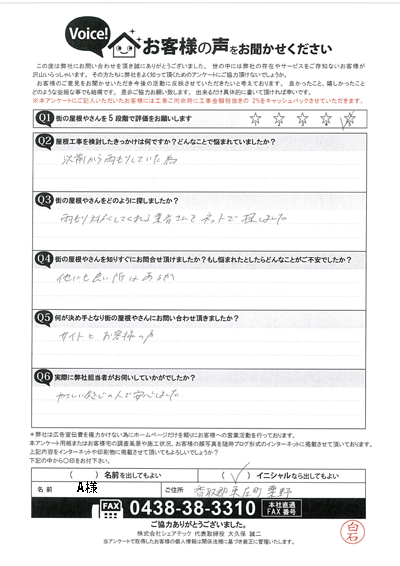 Voice!
お客様の声をお聞かせください
この度は弊社にお問い合わせを頂き誠にありがとうございました。世の中には弊社の存在やサービスをご存知ないお客様が
沢山いらっしゃいます。その方たちに弊社をよく知って頂くためのアンケートにご協力頂けないでしょうか。
お客様のご意見をお聞かせいただき今後の活動に反映させていただきたいと考えております。良かったこと、嬉しかったこと
どのような些細な事でも結構です。是非ご協力お願い致します。出来るだけ具体的に書いて頂ければ幸いです。
※本アンケートにご記入いただいたお客様には工事ご用命時に工事金額税抜きの 2%をキャッシュバックさせていただきます。
Q1 街の屋根やさんを5段階で評価をお願いします
Q2 屋根工事を検討したきっかけは何ですか?どんなことで悩まれていましたか?
以前から雨もりしていた為
Q3 街の屋根やさんをどのように探しましたか?
雨もり対応してくれる業者さんを ネットで探しました
Q4 街の屋根やさんを知りすぐにお問合せ頂けましたか?もし悩まれたとしたらどんなことがご不安でしたか?
他にも良い所はあるか
Q5 何が決め手となり街の屋根やさんにお問い合わせ頂きましたか?
サイトと お客様の声
Q6 実際に弊社担当者がお伺いしていかがでしたか?
やさしい感じの人で安心しました
*弊社は広告宣伝費を極力かけない為にホームページだけを頼りにお客様への営業活動を行っております。
本アンケート用紙またはお客様宅の調査風景や施工状況、お客様の顔写真を随時ブログ形式のインターネットに掲載させて頂いております。
上記内容をインターネットや印刷物に掲載させて頂いてもよろしいでしょうか?
下記の中から〇印をお付下さい。
( ) 名前を出してもよい
( ✓ ) イニシャルなら出してもよい
名前 A様 ご住所 香取郡東庄町粟野
FAX 0438-38-3310 本社直通 FAX番号
ご協力ありがとうございました。
株式会社シェアテック 代表取締役 大久保 誠二
当アンケートで取得したお客様の個人情報は関係法規に基づき厳正に管理いたします。
白石